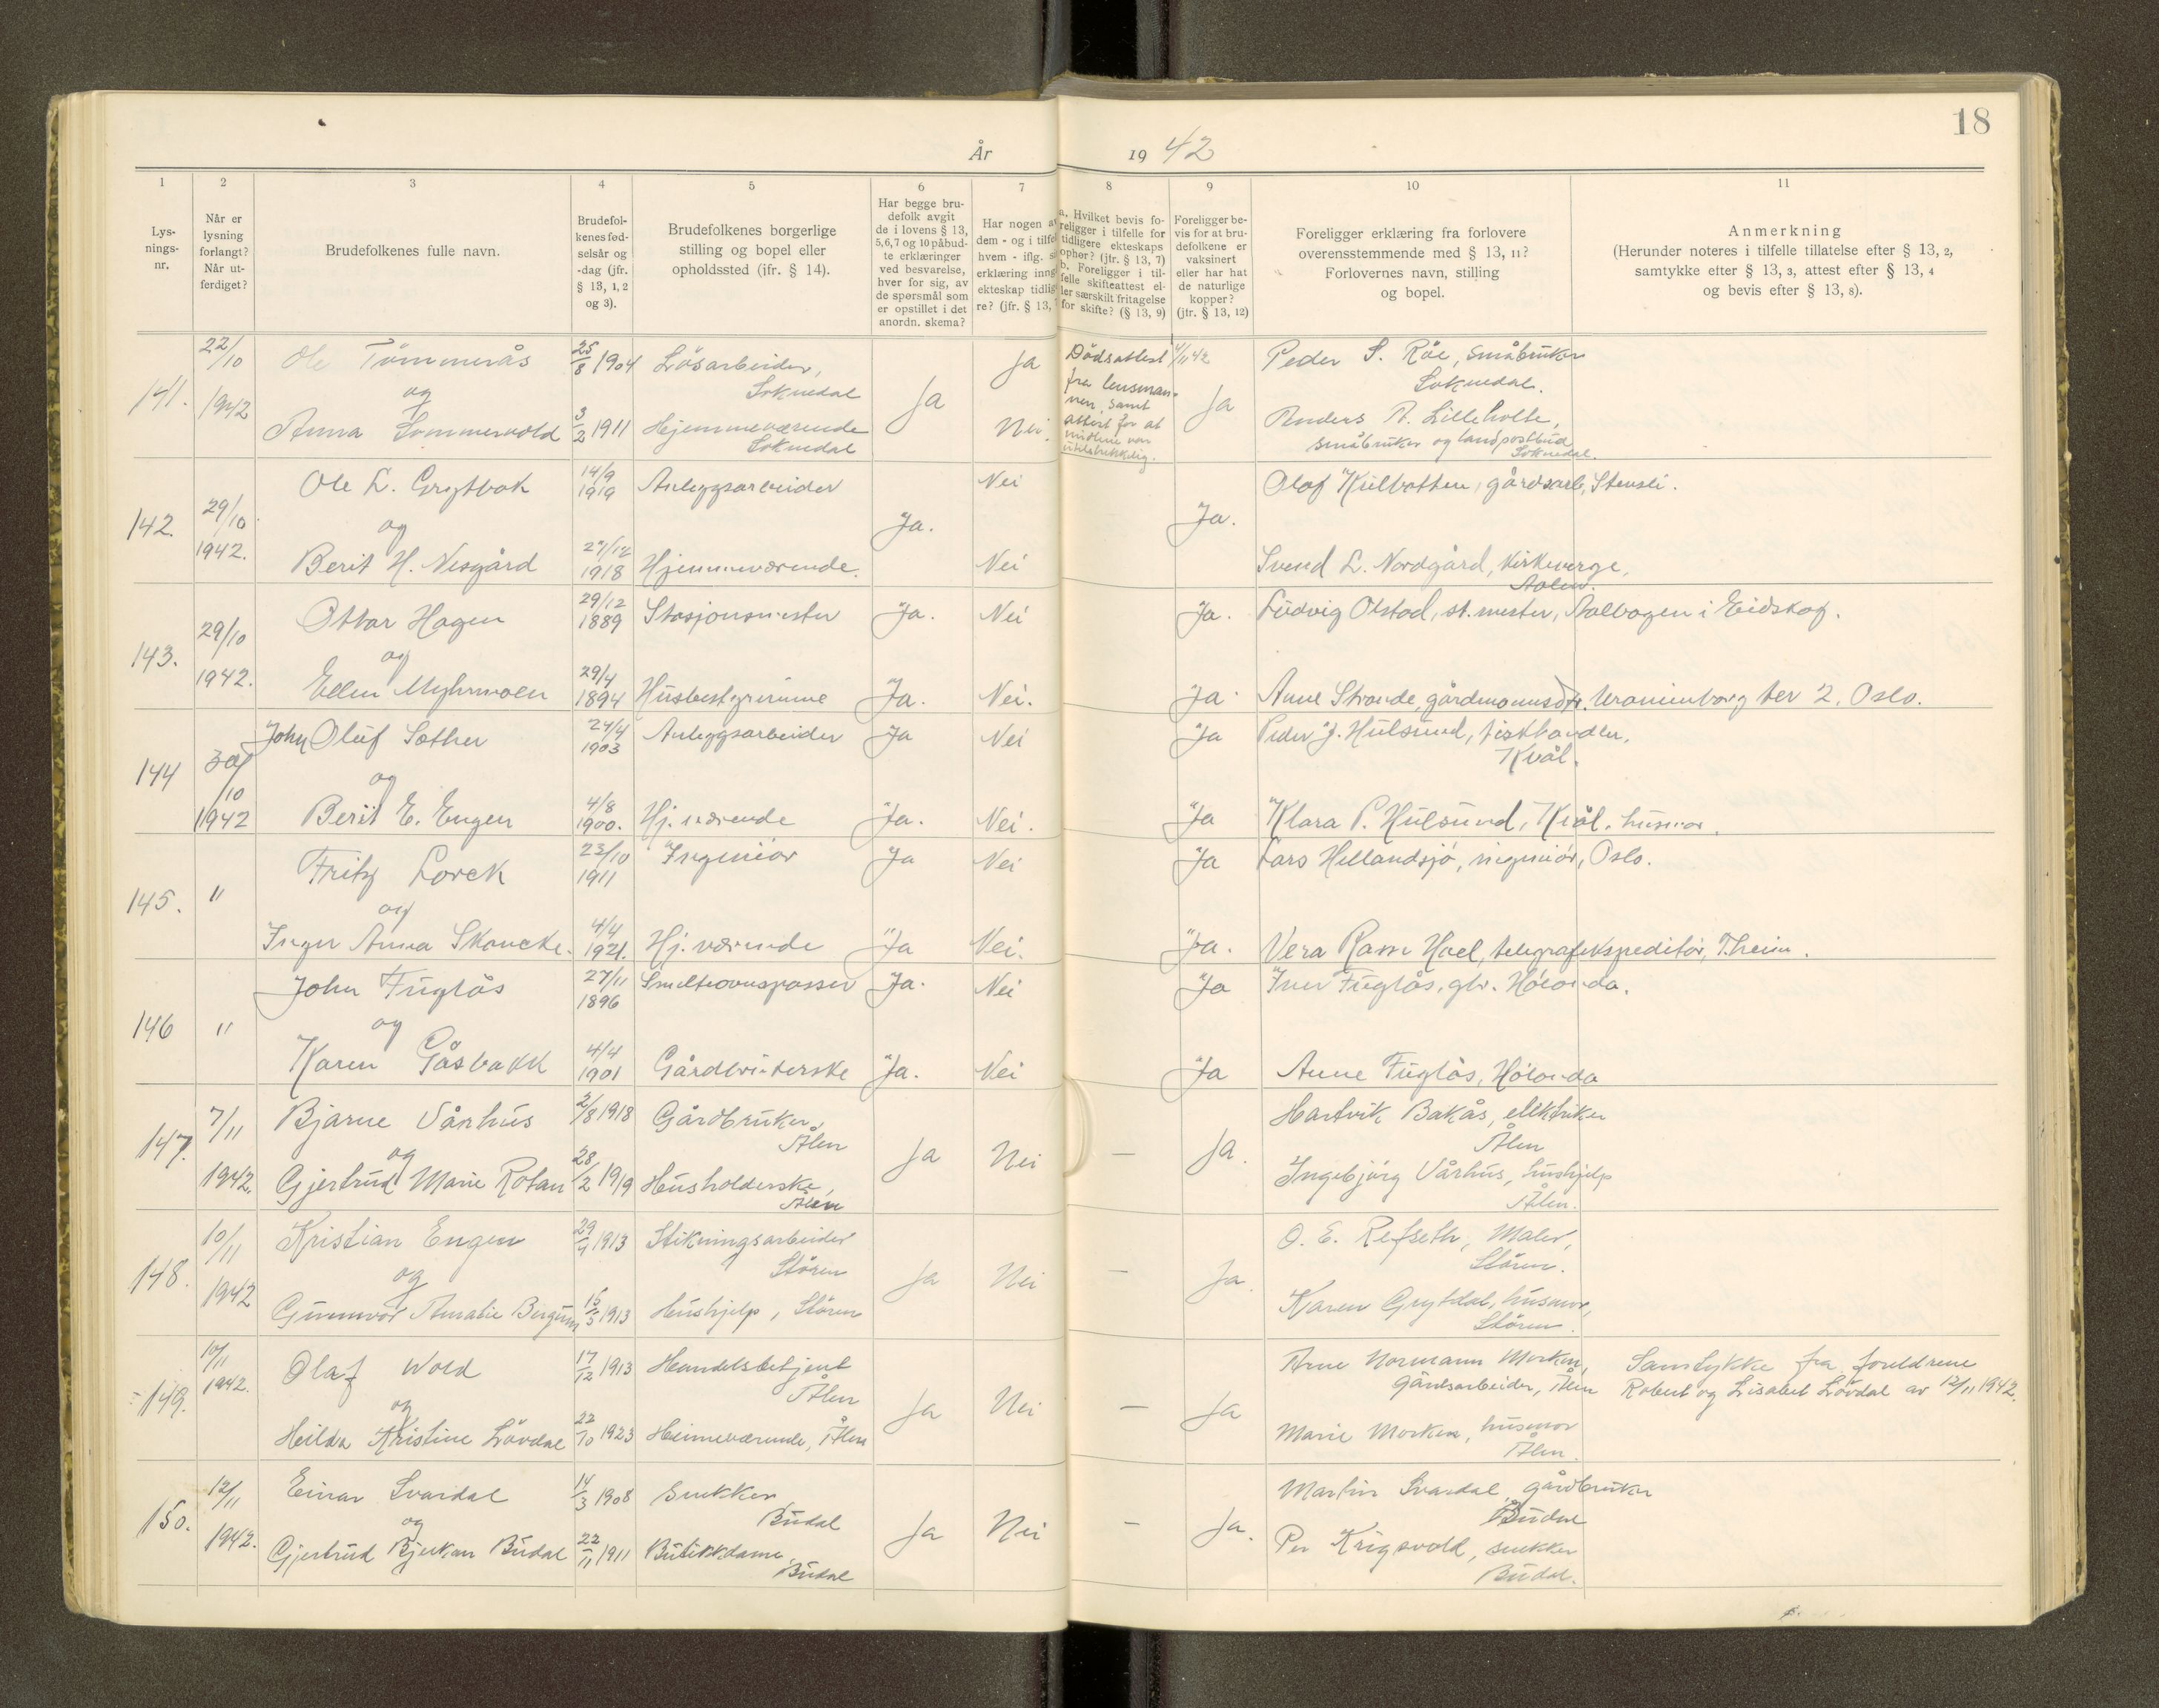 18
År 19 42
1 2 3 4 5 6 7 8 9 10 11
Lys-
nings-
nr.
Når er
lysning
forlangt?
Når ut-
ferdiget?
Brudefolkenes fulle navn.
Brudefol-
kenes fød-
selsår og
-dag (jfr.
§ 13, 1, 2
og 3).
Brudefolkenes borgerlige
stilling og bopel eller
opholdssted (jfr. § 14).
Har begge bru-
defolk avgit
de i lovens § 13,
5,6,7 og 10 påbud-
te erklæringer
ved besvarelse,
hver for sig, av
de spørsmål som
er opstillet i det
anordn. skema?
Har nogen av
dem - og i tilfel
hvem - iflg. si
erklæring inng
ekteskap tidlig
re? (jfr. § 13,
a. Hvilket bevis fo-
religger i tilfelle for
tidligere ekteskaps
ophør? (jfr. § 13, 7)
b. Foreligger i til-
felle skifteattest el-
ler særskilt fritagelse
for skifte? (§ 13, 9)
Foreligger be-
vis for at bru-
defolkene er
vaksinert
eller har hat
de naturlige
kopper?
(jfr. § 13, 12)
Foreligger erklæring fra forlovere
overensstemmende med § 13, 11?
Forlovernes navn, stilling
og bopel.
Anmerkning
(Herunder noteres i tilfelle tillatelse efter § 13, 2,
samtykke efter § 13, 3, attest efter § 13, 4
og bevis efter § 13, 8).
141. 22/10 1942
Ole Tömmerås 25/8 1904 Lösarbeider, Soknedal
og
Anna Sommervold 3/2 1911 Hjemmeværende Soknedal
Ja Ja Nei.
Dödsattest 4/11 42
fra lensman-
nen, samt
attest for at
midlene var
utilstrekkelig.
Ja
Peder S. Råe, småbruker
Soknedal.
Anders A. Lilleholte,
småbruker og landpostbud
Soknedal.
142. 29/10 1942.
Ole L. Grytbak 14/9 1919 Anleggsarbeider Nei
og Ja.
Berit H. Nesgård 27/12 1918 Hjemmeværende. Nei
Ja.
Olaf Kulbotten, gårdsarb, Stensli.
Svend L. Nordgård, kirkeverge,
Aalen.
143. 29/10 1942.
Ottar Hagen 29/12 1889 Stasjonsmester Ja. Nei Ja.
Ludvig Olstad, st.mester, Aabogen i Eidskog.
og
Ellen Myhrmoen 29/4 1894 Husbestyrerinne Ja. Nei. Ja.
Anne Strande, gårdmannsdtr. Uranienborg ter 2, Oslo.
144 30/10 1942
John Oluf Sæther 24/4 1903 Anleggsarbeider Ja Nei Ja
Peder J. Hulsund, fiskhandler,
Kvål.
og
Berit E. Engen 4/8 1900. Hj. værende Ja. Nei. Ja
Klara P. Hulsund, Kvål, husmor.
145. "
Fritz Lorck 23/10 1911 Ingeniör Ja Nei Ja
Lars Hellandsjö, ingeniör, Oslo.
og
Inger Anna Skancke. 4/4 1921. Hj. værende Ja Nei. Ja.
Vera Ramm Hoel, telegrafekspeditör, T.heim.
146 "
John Fuglås 27/11 1896 Smelteovnspasser Ja. Nei Ja
Iver Fuglås, gbr. Hölonda.
og
Karen Gåsbakk 4/4 1901 Gårdbrukerske Ja. Nei Ja
Anne Fuglås, Hölonda
147. 7/11 1942.
Bjarne Vårhus 2/8 1918 Gårdbruker, Ålen
og
Gjertrud Marie Rotan 28/2 1919 Husholderske, Ålen
Ja Nei — Ja.
Hartvik Bakås, elektriker
Ålen
Ingebjörg Vårhus, hushjelp
Ålen.
148. 10/11 1942
Kristian Engen 29/4 1913 Stikningsarbeider Stören
og
Gunnvor Amalie Bergum 16/5 1913 Hushjelp, Stören
Ja Nei — Ja.
O. E. Refseth, Maler,
Stören.
Karen Grytdal, husmor,
Stören.
149. 10/11 1942.
Olaf Wold 17/12 1913 Handelsbetjent Ålen
og
Heilda Kristine Lövdal 22/10 1923 Heimeværende, Ålen
Ja Nei — Ja
Arne Normann Morken,
Gårdsarbeider, Ålen
Marie Morken, husmor
Ålen.
Samtykke fra foreldrene
Robert og Lisabet Lövdal av 12/11 1942.
150. 12/11 1942.
Einar Svardal 14/3 1908 Snekker Budal
og
Gjertrud Bjerkan Budal 22/11 1911 Butikkdame, Budal
Ja Nei — Ja.
Martin Svardal, gårdbruker
Budal
Per Krigsvold, snekker
Budal.